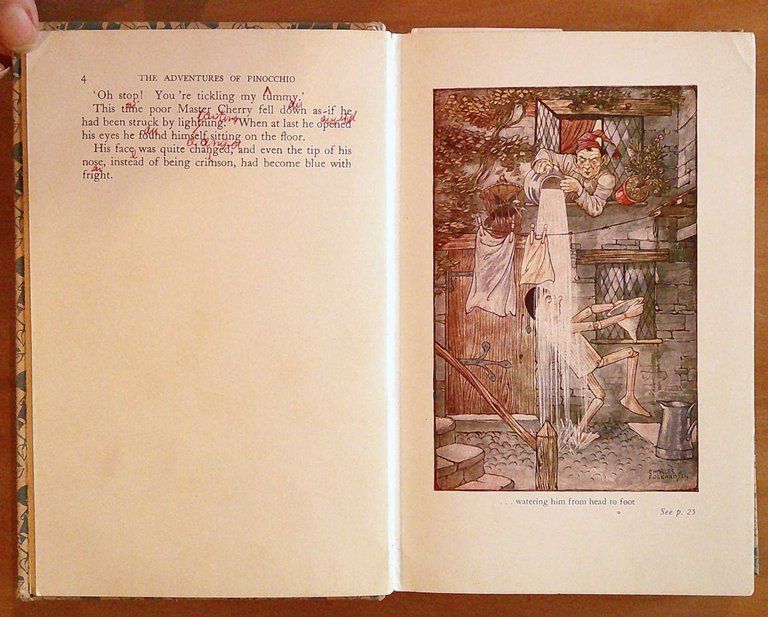 4 THE ADVENTURES OF PINOCCHIO
'Oh stop! You're tickling my tummy.'
This time poor Master Cherry fell down as if he
had been struck by lightning. When at last he opened
his eyes he found himself sitting on the floor.
His face was quite changed, and even the tip of his
nose, instead of being crimson, had become blue with
fright.
CHARLES
FOLKARD
. . watering him from head to foot
See p. 25